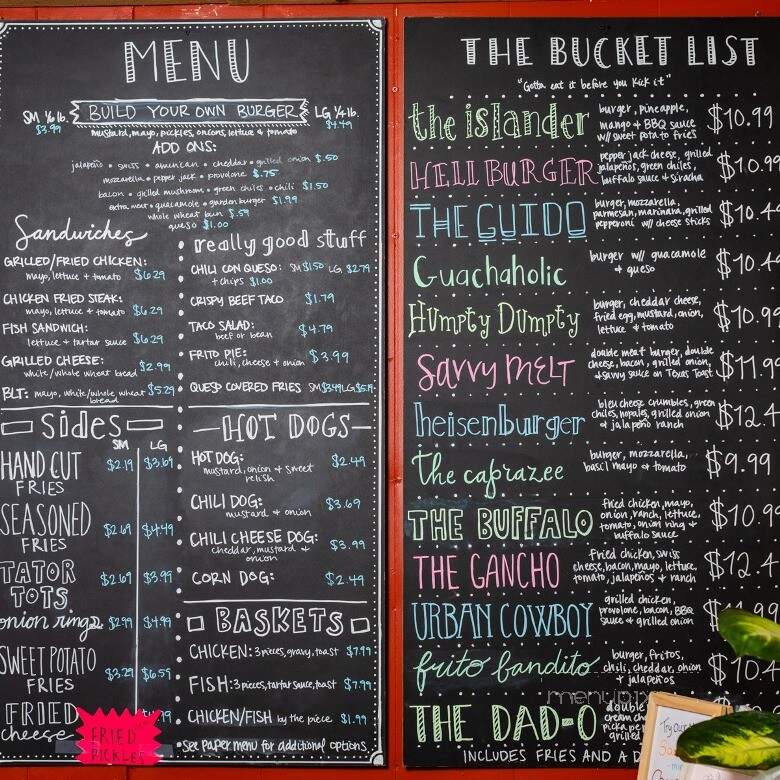 MENU
SM 1/6 lb. BUILD YOUR OWN BURGER LG 1/4 lb.
$3.99 $4.49
mustard, mayo, pickles, onions, lettuce & tomato
ADD ONS:
jalapeño • swiss • american • cheddar • grilled onion $.50
mozzarella • pepper jack • provolone $.75
bacon • grilled mushroom • green chiles • chili $1.50
extra meat • guacamole • garden burger $1.99
whole wheat bun $.59
queso $1.00
Sandwiches
GRILLED/FRIED CHICKEN:
mayo, lettuce + tomato $6.29
CHICKEN FRIED STEAK:
mayo, lettuce + tomato $6.29
FISH SANDWICH:
lettuce + tartar sauce $6.29
GRILLED CHEESE:
white/whole wheat bread $2.99
BLT: mayo, white/whole wheat $5.29
bread
really good stuff
CHILI CON QUESO: SM $1.50 LG $2.79
+ chips $1.00
CRISPY BEEF TACO $1.79
TACO SALAD: $4.79
beef or bean
FRITO PIE: $3.99
chili, cheese + onion
QUESO COVERED FRIES SM $3.49 LG
Sides
SM LG
HAND CUT $2.19 $3.69
FRIES
SEASONED $2.69 $4.49
FRIES
TATOR $2.69 $3.99
TOTS
onion rings $2.99 $4.99
SWEET POTATO $3.29 $6.59
FRIES
FRIED
cheese
FRIED
PICKLES
HOT DOGS
HOT DOG: $2.49
mustard, onion & sweet
relish
CHILI DOG: $3.69
mustard & onion
CHILI CHEESE DOG: $3.99
cheddar, mustard &
onion
CORN DOG: $2.49
BASKETS
CHICKEN: 3 pieces, gravy, toast $7.99
FISH: 3 pieces, tartar sauce, toast $7.99
CHICKEN/FISH by the piece $1.99
*See Paper menu for additional options.
THE BUCKET LIST
"Gotta eat it before you kick it"
the islander burger, pineapple, $10.99
mango & BBQ sauce
w/ sweet potato fries
HELL BURGER pepper jack cheese, grilled $10.9
jalapeños, green chiles,
buffalo sauce & siracha
THE GUIDO burger, mozzarella, $10.4
parmesan, marinara, grilled
pepperoni w/ cheese sticks
Guachaholic burger w/ guacamole $10.4
& queso
Humpty Dumpty burger, cheddar cheese, $10.99
fried egg, mustard, onion,
lettuce & tomato
Savvy MELT double meat burger, double $11.9
cheese, bacon, grilled onion
& savvy sauce on Texas Toast
heisenburger bleu cheese crumbles, green $12.4
chiles, nopales, grilled onion
& jalapeño ranch
the caprazee burger, mozzarella, $9.99
basil mayo & tomato
THE BUFFALO fried chicken, mayo, $10.9
onion, ranch, lettuce,
tomato, onion ring &
buffalo sauce
THE GANCHO Fried chicken, swiss $12.4
cheese, bacon, mayo, lettuce,
tomato, jalapeños & ranch
URBAN COWBOY grilled chicken,
provolone, bacon, BBQ
sauce & grilled onion
frito bandito burger, fritos, $10.4
chili, cheddar, onion
& jalapeños
menupix
THE DAD-O double
cream ch
grilled
INCLUDES FRIES AND A D
Try Our